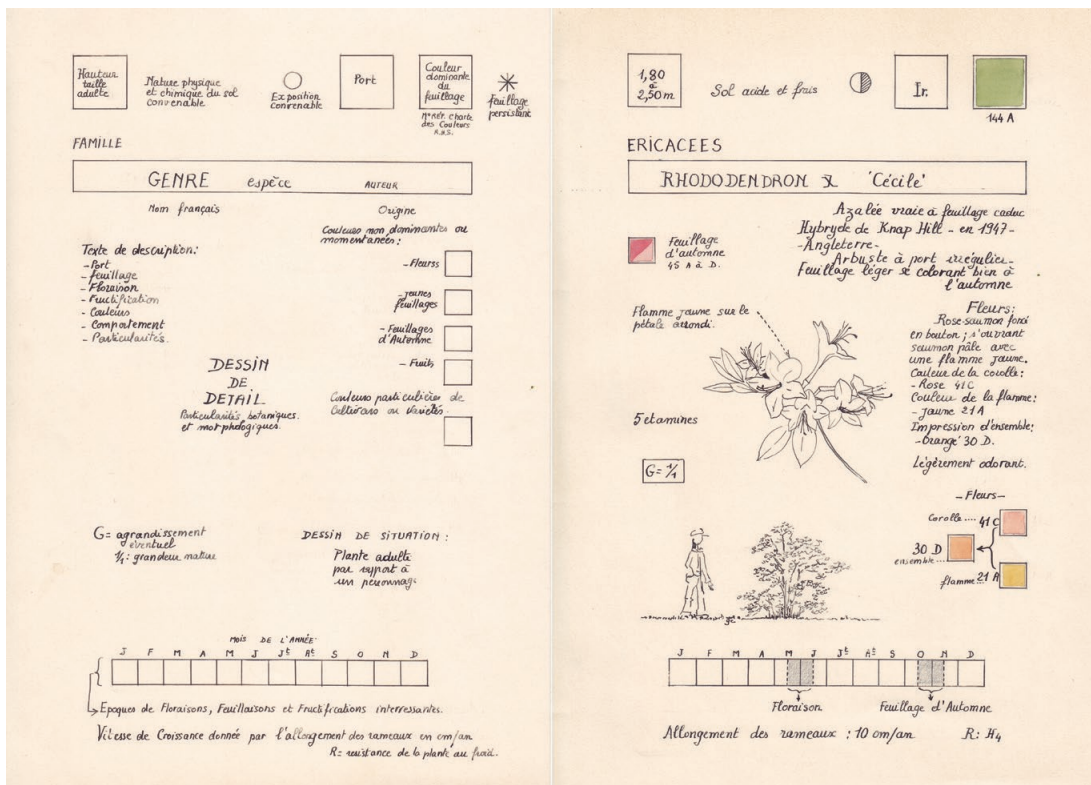 Hauteur
taille
adulte
Nature physique
et chimique du sol
convenable
Exposition
convenable
Port
Couleur
dominante
du
feuillage
N° Réf. Charte
des Couleurs
R.H.S.
feuillage
persistant
FAMILLE
GENRE espèce AUTEUR
Nom français
Origine
Couleurs non dominantes ou
momentanées :
Texte de description:
- Port
- feuillage
- Floraison
- Fructification
- Couleurs
- Comportement
- Particularités.
- Fleurss
- jeunes
feuillages
- Feuillages
d'Automne
- Fruits
DESSIN
DE
DETAIL
Particularités botaniques.
et morphologiques.
Couleurs particulières de
Cultivars ou Variétés.
G= agrandissement
éventuel
1/1: grandeur nature
DESSIN DE SITUATION :
Plante adulte
par rapport à
un personnage
MOIS DE L'ANNÉE
J F M A M J Jt At S O N D
Epoques de Floraisons, Feuillaisons et Fructifications interressantes.
Vitesse de Croissance donnée par l'allongement des rameaux en cm/an
R= resistance de la plante au froid.
1,80
à
2,50m
Sol acide et frais
Ir.
144 A
ERICACEES
RHODODENDRON X 'Cécile'
Azalée vraie à feuillage caduc
Hybryde de Knap Hill - en 1947-
-Angleterre-
Arbuste à port irrégulier-
Feuillage léger se colorant bien à
l'automne
Feuillage
d'automne
45 A à D.
Flamme jaune sur le
pétale arrondi.
Fleurs:
Rose-saumon foncé
en bouton ; s'ouvrant
saumon pâle avec
une flamme jaune.
Couleur de la corolle:
- Rose 41C
Couleur de la flamme:
- jaune 21A
Impression d'ensemble:
- Orangé 30 D.
Légèrement odorant.
5 etamines
G= 1/1
- Fleurs -
Corolle .... 41 C
30 D
ensemble...
flamme.. 21 A
J F M A M J Jt At S O N D
Floraison
Feuillage d'Automne
Allongement des rameaux : 10 cm/an R: H4